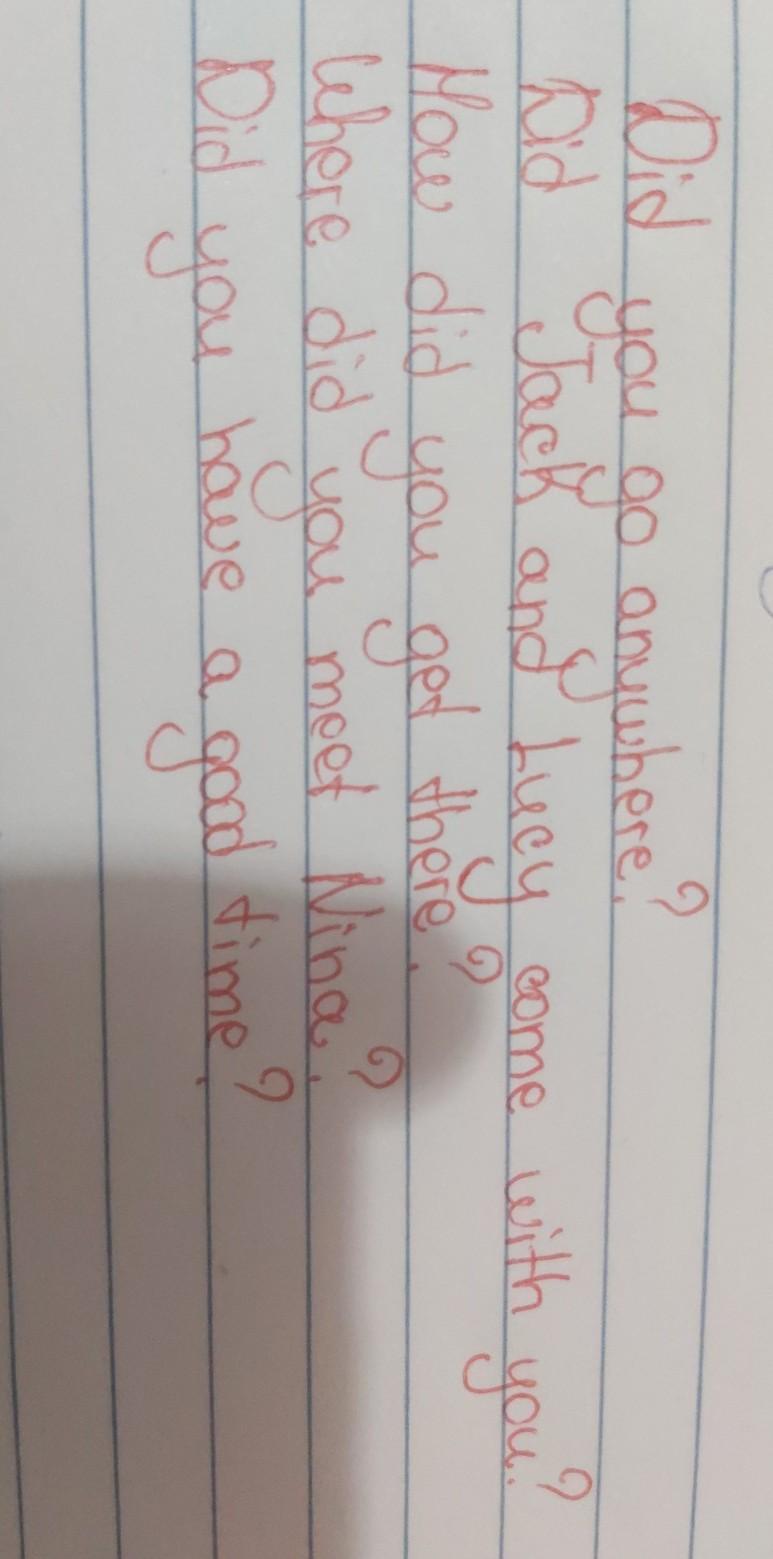 Did you go anywhere?
Did Jack and Lucy come with you?
How did you get there?
Where did you meet Nina?
Did you have a good time?